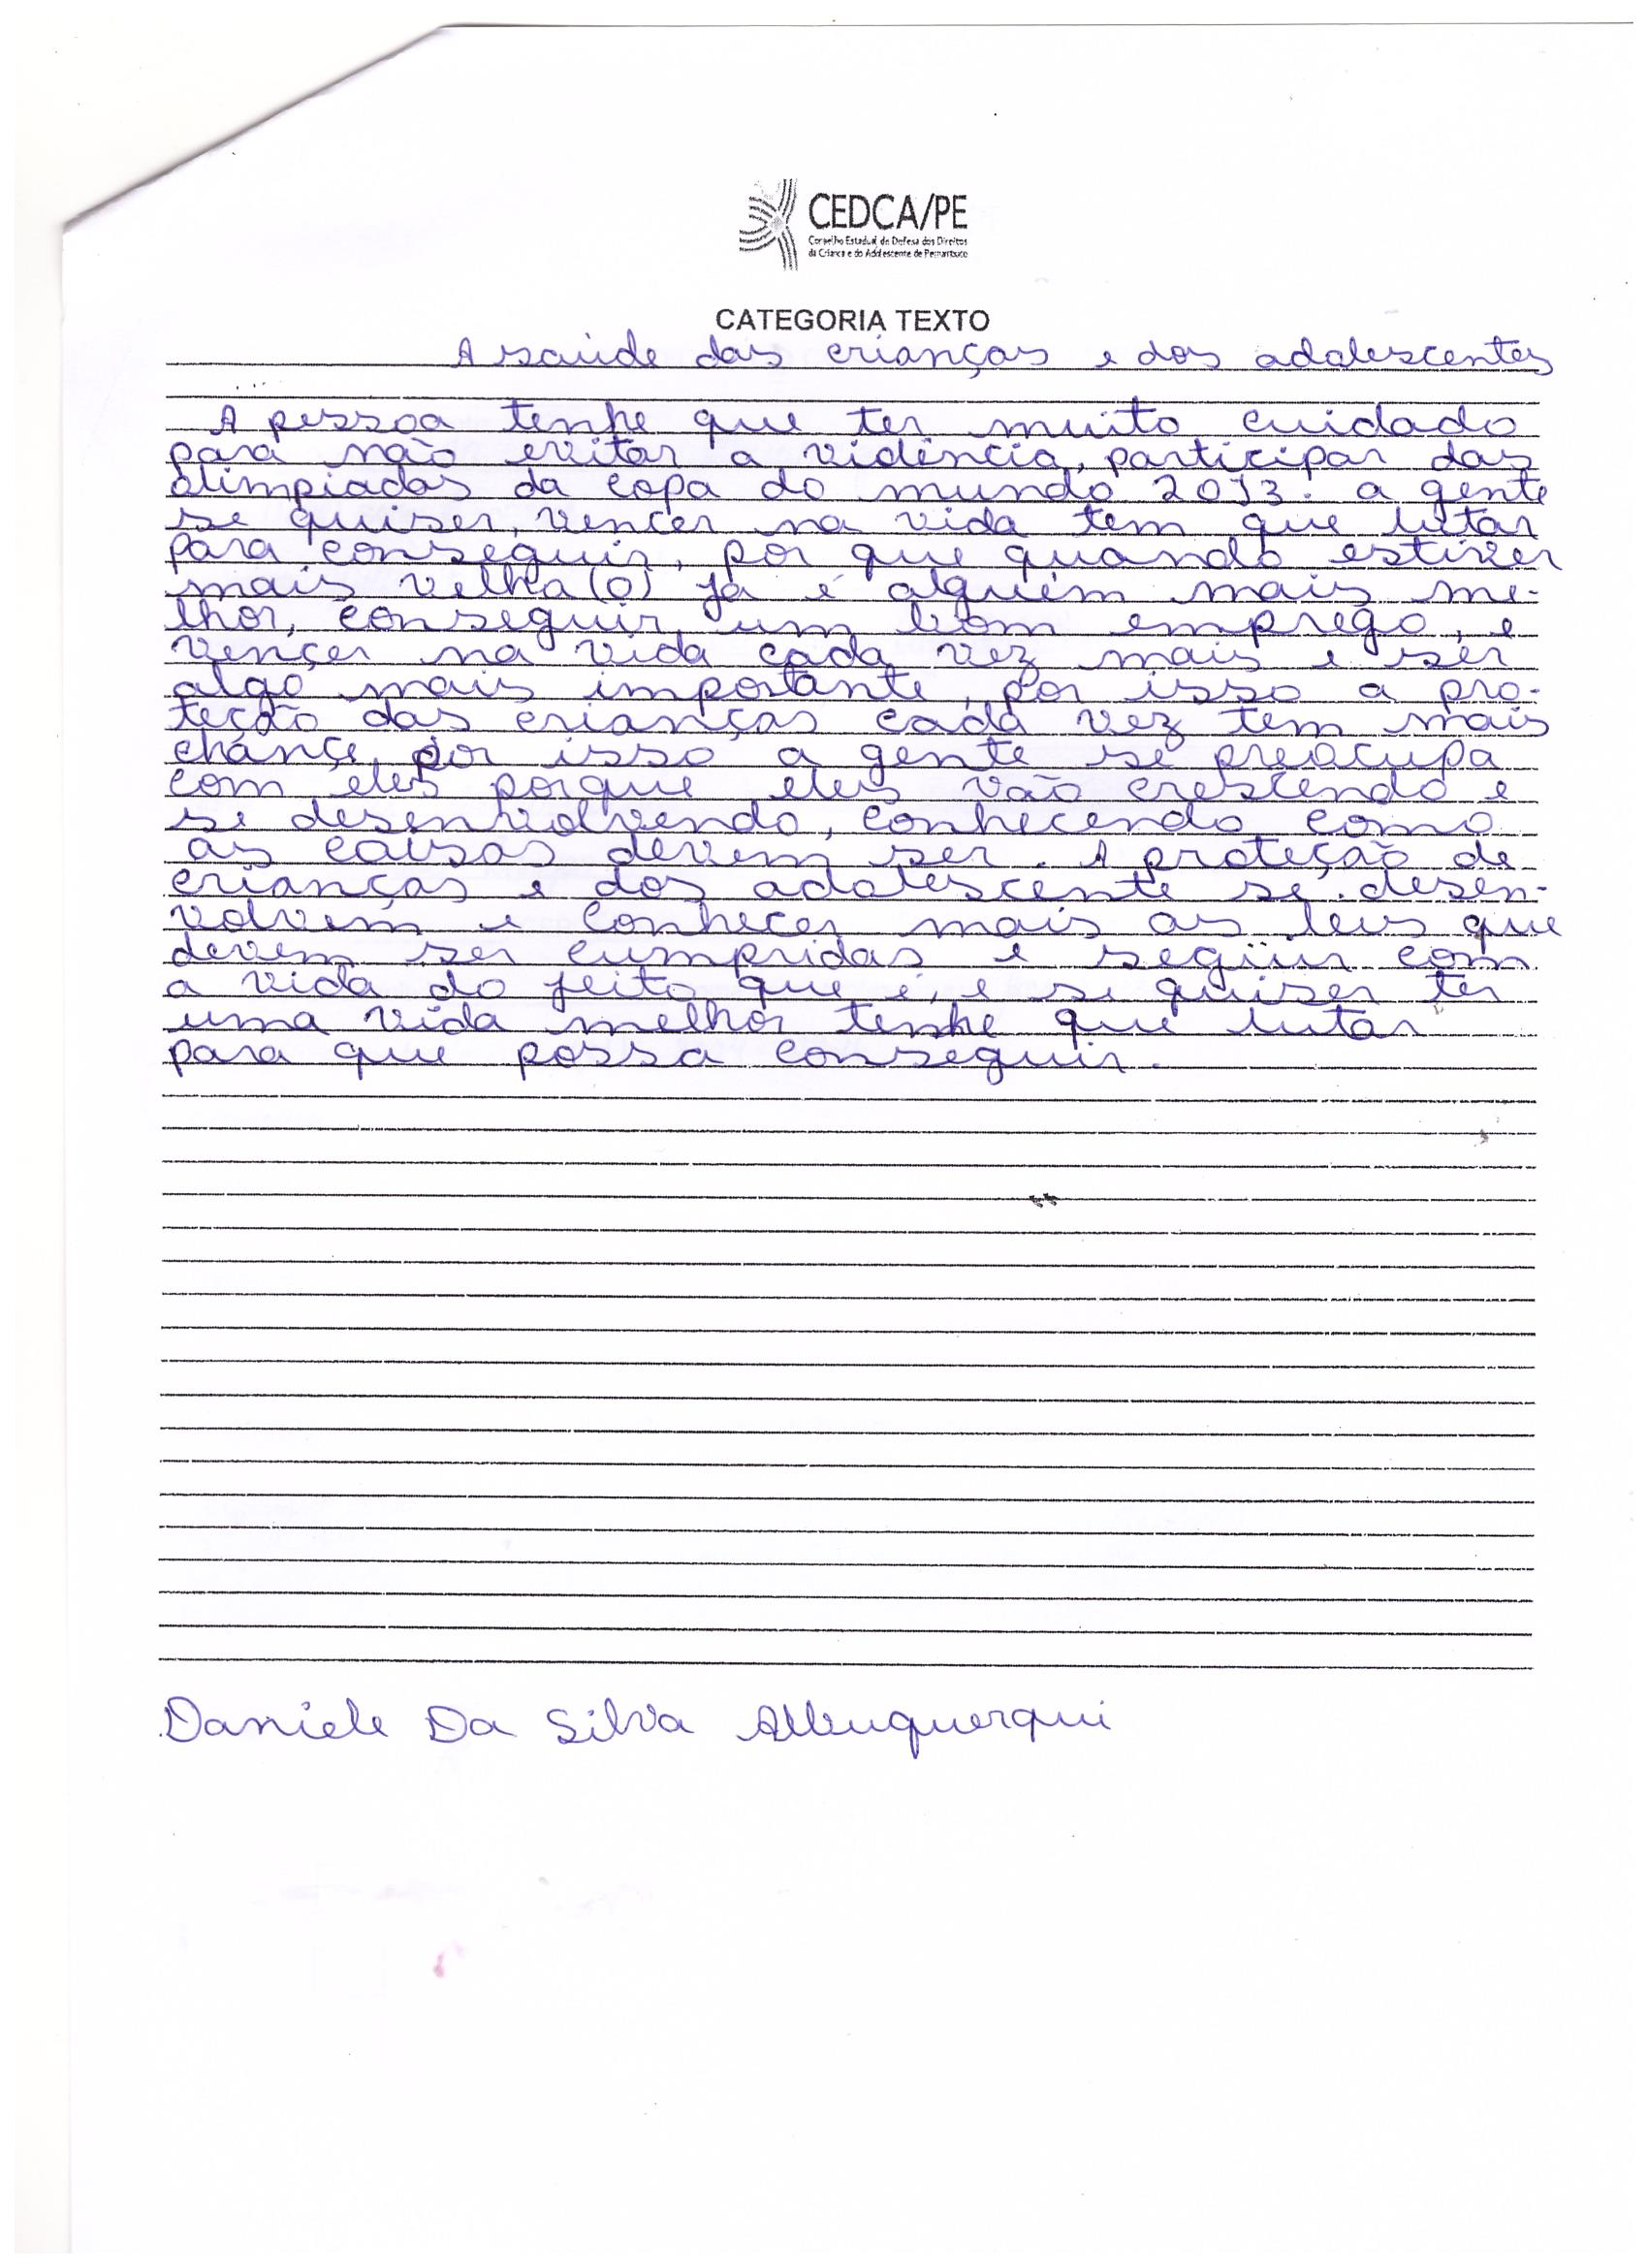 CEDCA/PE
Conselho Estadual de Defesa dos Direitos
da Criança e do Adolescente de Pernambuco
CATEGORIA TEXTO
A saúde das crianças e dos adolescentes
A pessoa tenhe que ter muito cuidado
para não evitar a vidência, participar das
olimpiadas da copa do mundo 2013. a gente
se quiser, vencer na vida tem que lutar
para conseguir, por que quando estiver
mais velha(o) já é alguém mais me-
lhor, conseguir um bom emprego, e
vençer na vida cada vez mais e ser
algo mais importante, por isso a pro-
teção das crianças cada vez tem mais
chançe, por isso a gente se preocupa
com eles porque eles vão crescendo e
se desenvolvendo, conhecendo como
as caisas devem ser. A proteção de
crianças e dos adolescente se desen-
volvem e conhecer mais as leis que
devem ser cumpridas e següir com
a vida do jeito que é, e si quiser ter
uma vida melhor tenhe que lutar
para que possa conseguir.
Daniele Da Silva Albuquerqui